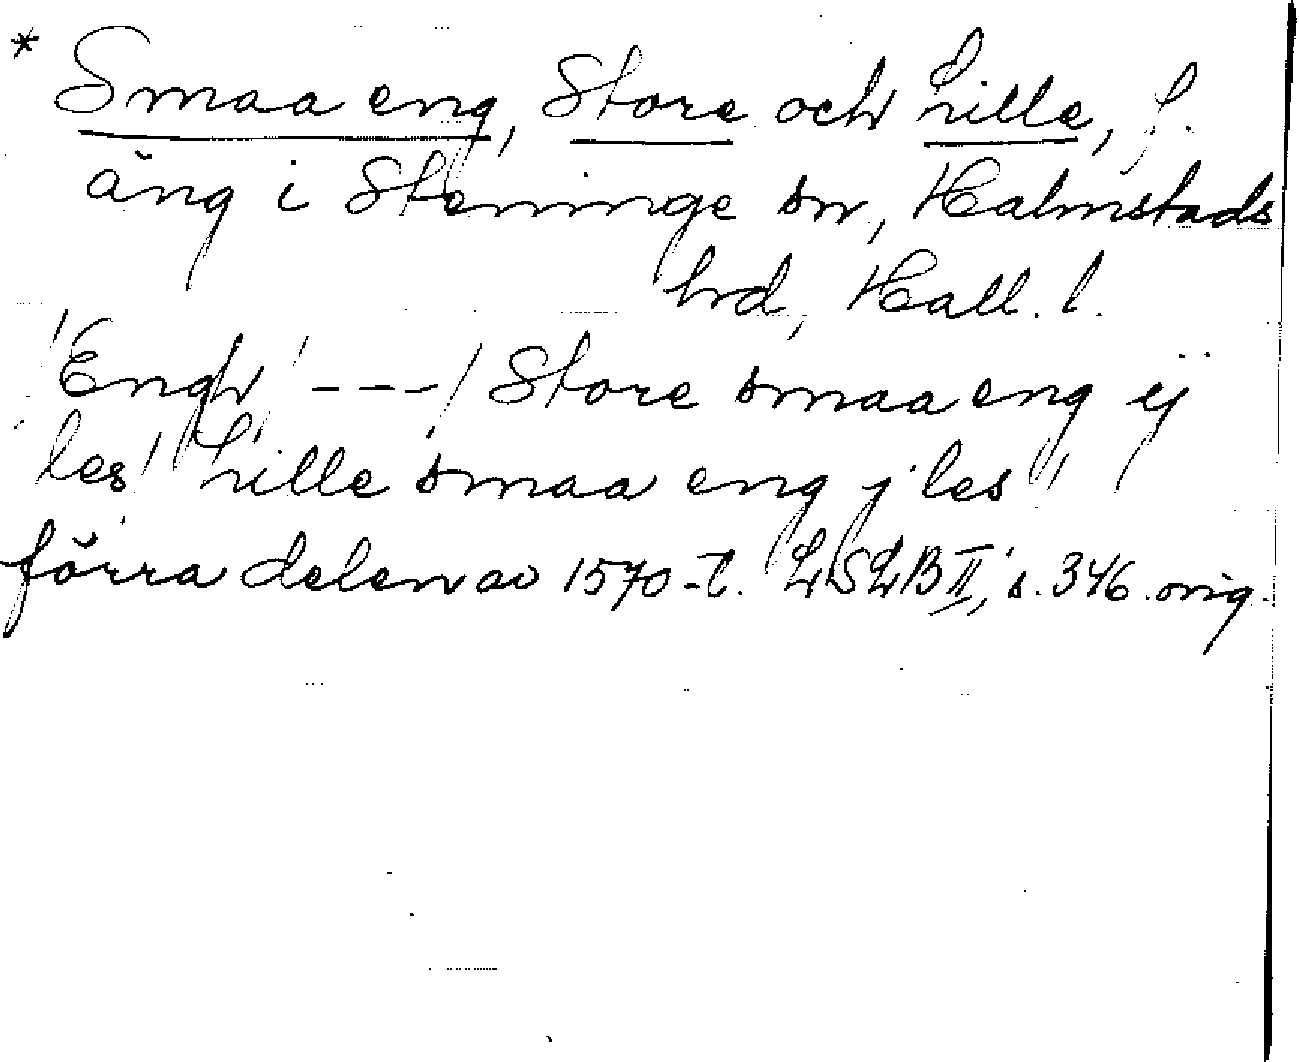 * Smaa eng, Store och Lille, f.
äng i Steninge sn, Halmstads
hrd, Hall. l.
"Engh" ---/ Store smaa eng ij
les/ Lille smaa eng j les"
förra delen av 1570-t. LSLB II, s. 346. orig.